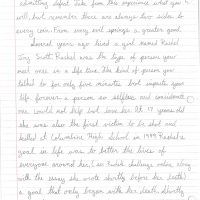 admitting defeat. Take from this experience what you
will, but remember there are always two sides to
every coin. From every evil springs a greater good.
Several years ago lived a girl named Rachel
Joy Scott. Rachel was the type of person you
meet once in a life time. The kind of person you
talked to for only five minutes but impacts your
life forever- a person so selfless and considerate one
could not help but love her. At 17 years old
she was also the first victim to be shot and
killed at Columbine High School in 1999. Rachel's
goal in life was to better the lives of
everyone around her, ( her Rachel's challenge video along
with the essay she wrote shortly before her death)
a goal that only began with her death. Shortly